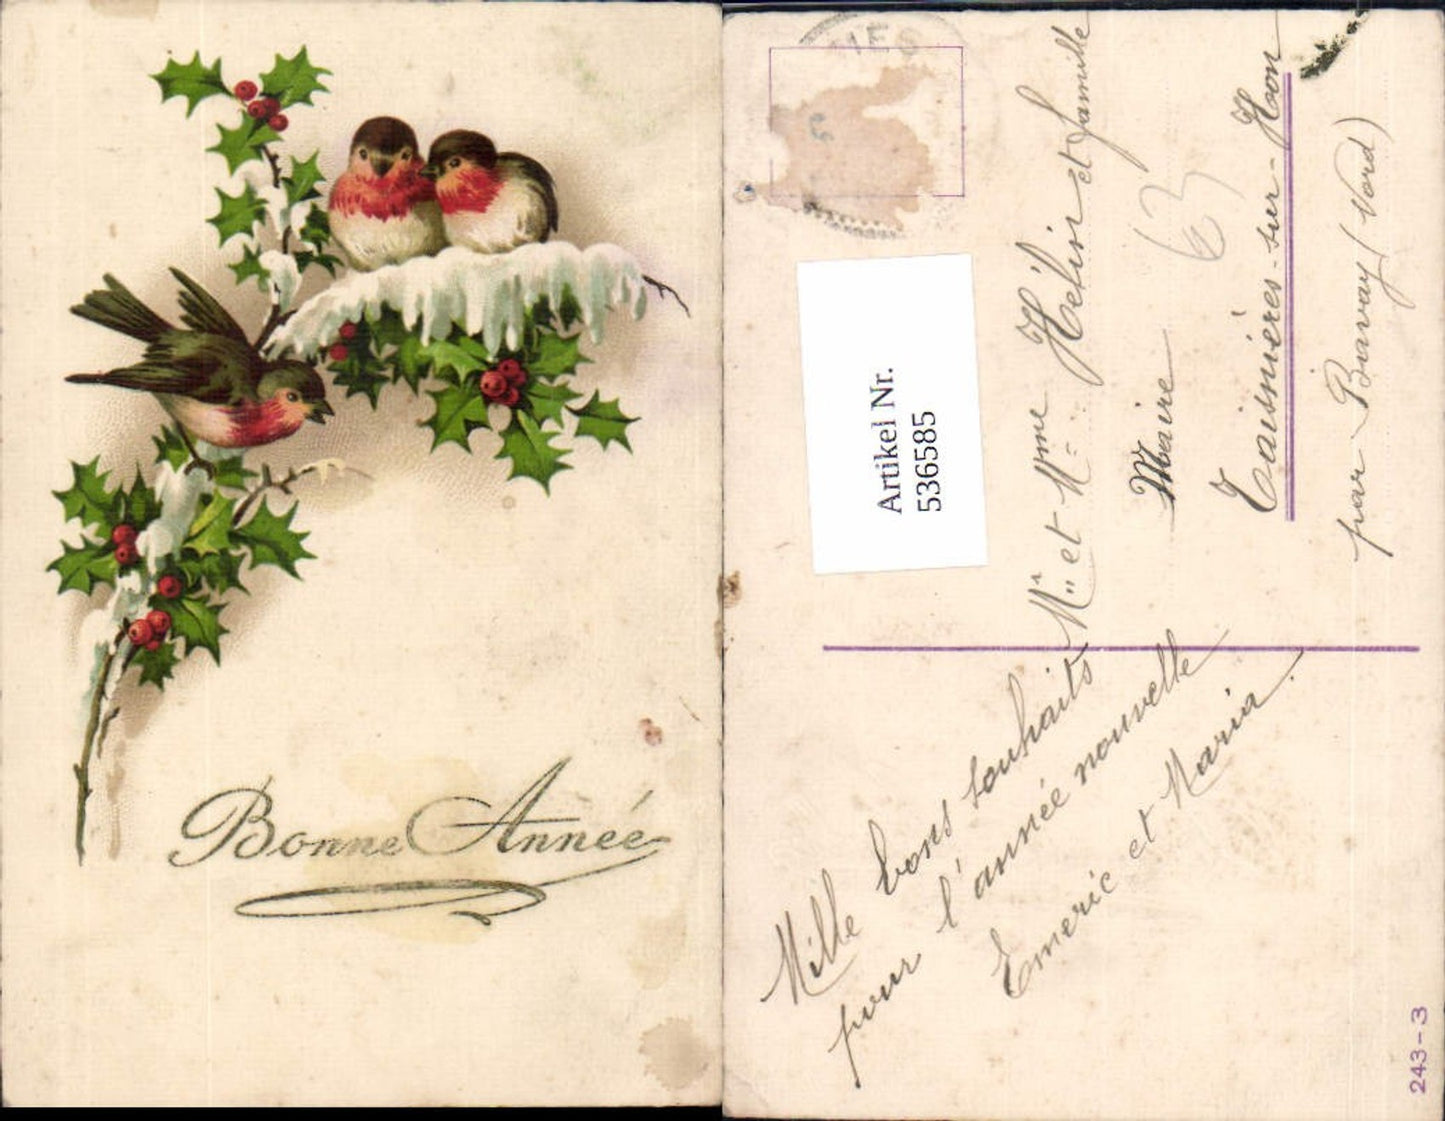 Bonne Année
50
Artikel Nr.
536585
Mr et Mme Hélin et famille
Maire
63
Taisnières-sur-Hon
par Bavay (Nord)
Mille bons souhaits
pour l'année nouvelle
Emeric et Maria.
243-3